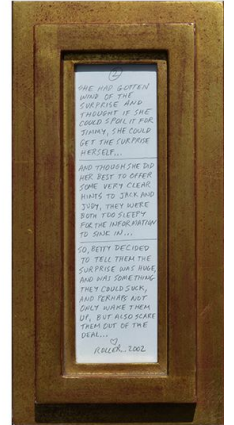 2
SHE HAD GOTTEN
WIND OF THE
SURPRISE AND
THOUGHT IF SHE
COULD SPOIL IT FOR
JIMMY, SHE COULD
GET THE SURPRISE
HERSELF...
AND THOUGH SHE DID
HER BEST TO OFFER
SOME VERY CLEAR
HINTS TO JACK AND
JUDY, THEY WERE
BOTH TOO SLEEPY
FOR THE INFORMATION
TO SINK IN...
SO, BETTY DECIDED
TO TELL THEM THE
SURPRISE WAS HUGE,
AND WAS SOMETHING
THEY COULD SUCK,
AND PERHAPS NOT
ONLY WAKE THEM
UP, BUT ALSO SCARE
THEM OUT OF THE
DEAL...
ROLLER..2002